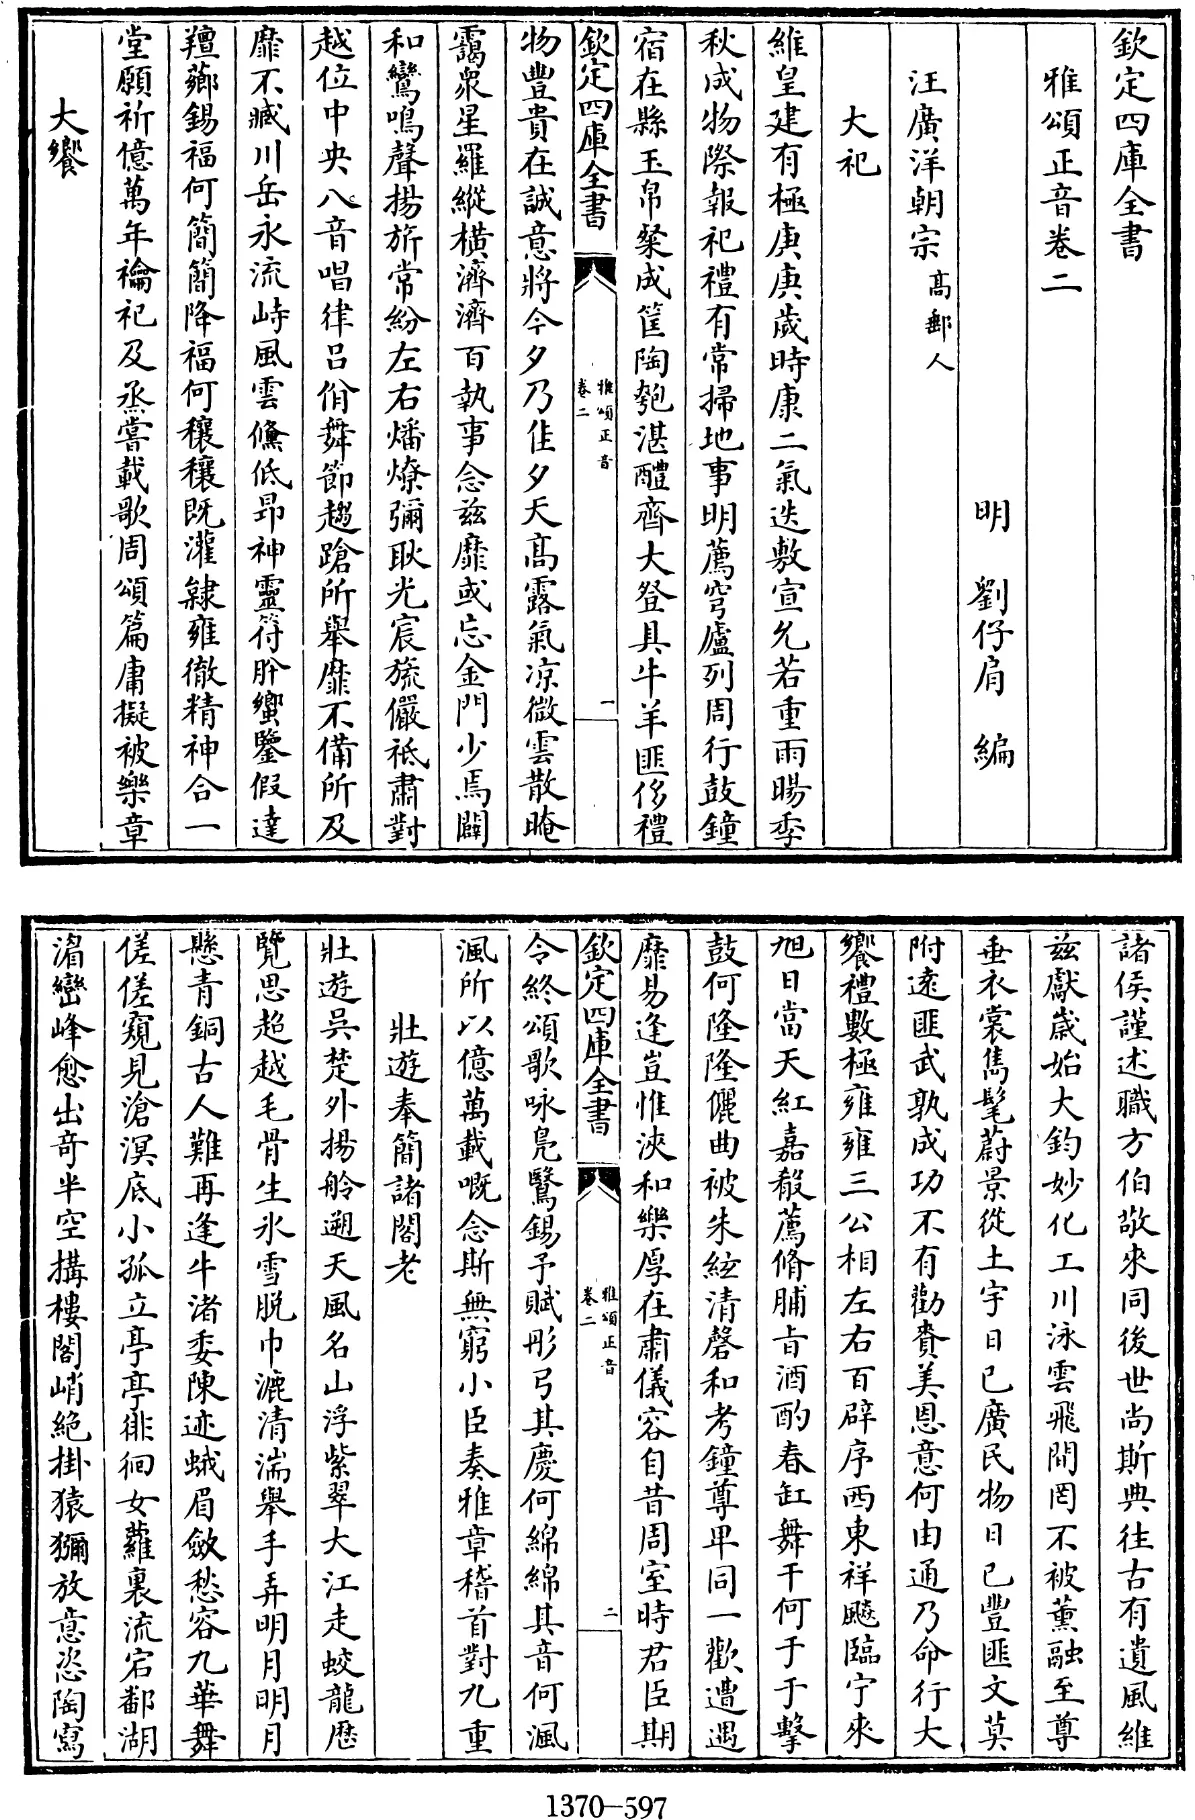 欽定四庫全書
雅頌正音卷二
明　劉仔肩　編
汪廣洋朝宗高郵人
大祀
維皇建有極庚庚歲時康二氣迭敷宣允若重雨暘季
秋成物際報祀禮有常掃地事明薦穹廬列周行鼓鐘
宿在縣玉帛粲成筐陶匏湛醴齊大登具牛羊匪侈禮
欽定四庫全書
雅頌正音
卷二
一
物豐貴在誠意將今夕乃隹夕天高露氣凉微雲散晻
靄衆星羅縱橫濟濟百執事念兹靡或忘金門少焉闢
和鸞鳴聲揚旂常紛左右燔燎彌耿光宸旒儼祗肅對
越位中央八音唱律呂佾舞節趨蹌所舉靡不備所及
靡不臧川岳永流峙風雲儵低昂神靈符肸蠁鑒假達
羶薌錫福何簡簡降福何穰穰既灌隷雍徹精神合一
堂願祈億萬年禴祀及烝嘗載歌周頌篇庸擬被樂章
大饗
諸侯謹述職方伯敬來同後世尚斯典往古有遺風維
兹獻歲始大鈞妙化工川泳雲飛間罔不被薰融至尊
垂衣裳雋髦蔚景從土宇日已廣民物日已豐匪文莫
附遠匪武孰成功不有勸賚美恩意何由通乃命行大
饗禮數極雍雍三公相左右百辟序西東祥飈臨宁來
旭日當天紅嘉殽薦脩脯旨酒酌春缸舞干何于于擊
鼓何隆隆儷曲被朱絃清磬和考鐘尊卑同一歡遭遇
靡易逢豈惟浹和樂厚在肅儀容自昔周室時君臣期
欽定四庫全書
雅頌正音
卷二
二
令終頌歌咏鳧鷖錫予賦彤弓其慶何綿綿其音何渢
渢所以億萬載嘅念斯無窮小臣奏雅章稽首對九重
壯遊奉簡諸閣老
壯遊吳楚外揚舲遡天風名山浮紫翠大江走蛟龍歷
覽思超越毛骨生氷雪脱巾漉清湍舉手弄明月明月
懸青銅古人難再逢牛渚委陳迹蛾眉斂愁容九華舞
傞傞窺見滄溟底小孤立亭亭徘徊女蘿裏流宕鄱湖
湑巒峰愈出竒半空搆樓閣峭絶掛猿獼放意恣陶寫
1370—597